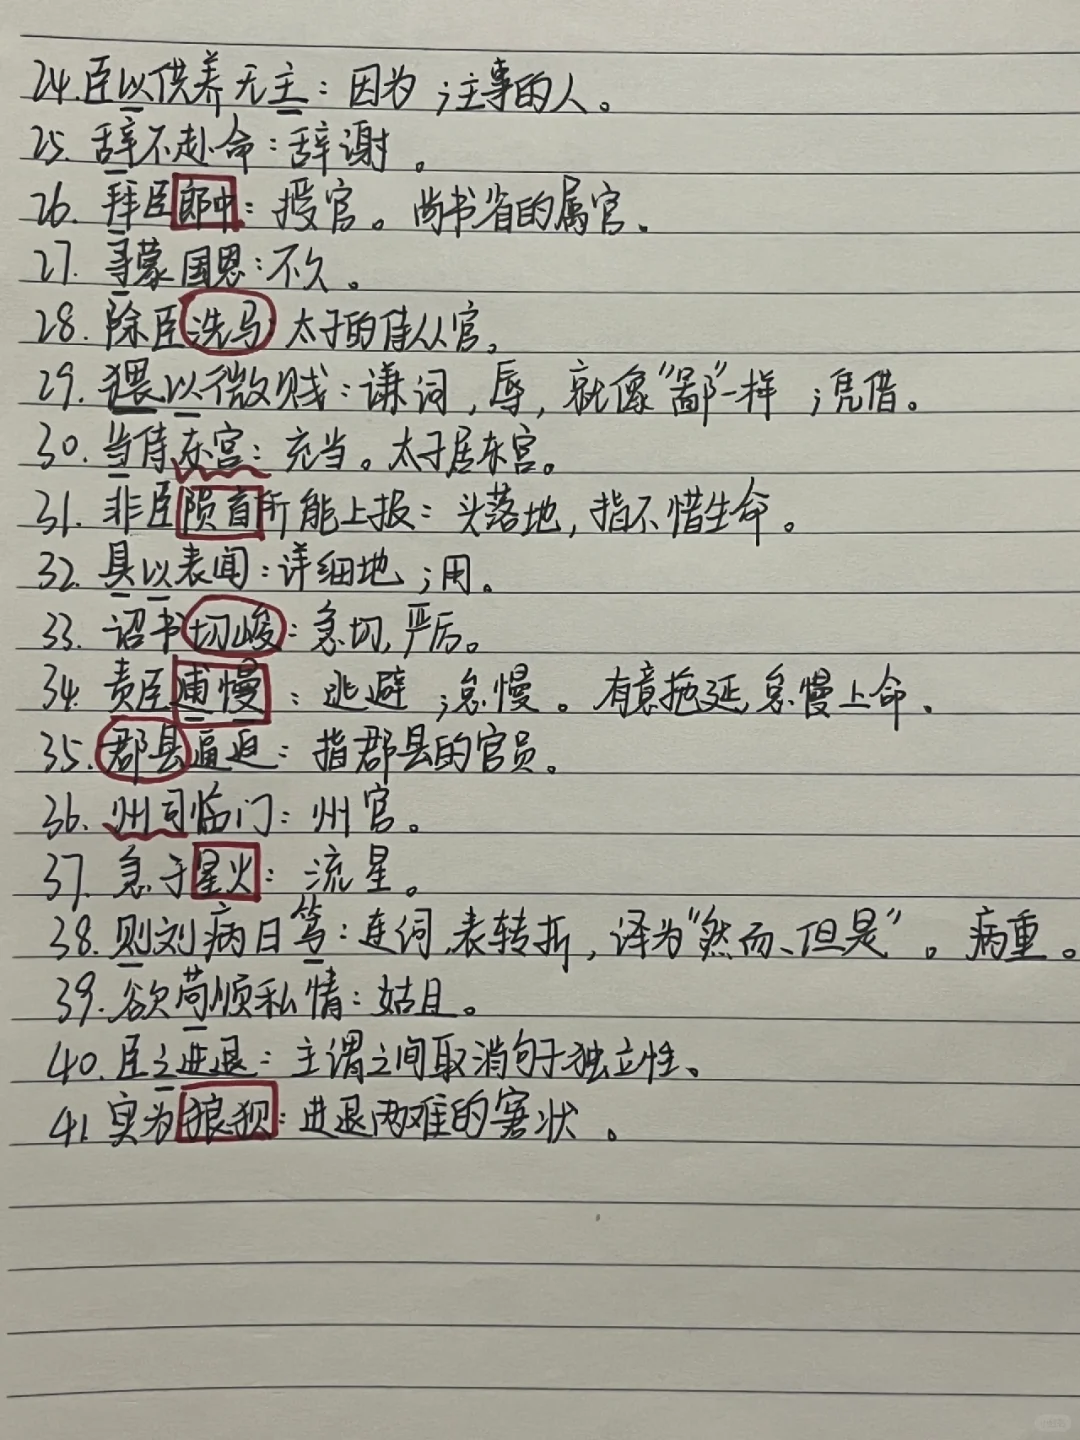 24.臣以供养无主：因为；主事的人。
25.辞不赴命：辞谢。
26.拜臣郎中：授官。尚书省的属官。
27.寻蒙国恩：不久。
28.除臣洗马：太子的侍从官。
29.猥以微贱：谦词，辱，就像“鄙”一样；凭借。
30.当侍东宫：充当。太子居东宫。
31.非臣陨首所能上报：头落地，指不惜生命。
32.具以表闻：详细地；用。
33.诏书切峻：急切，严厉。
34.责臣逋慢：逃避；怠慢。有意拖延，怠慢上命。
35.郡县逼迫：指郡县的官员。
36.州司临门：州官。
37.急于星火：流星。
38.则刘病日笃：连词，表转折，译为“然而、但是”。病重。
39.欲苟顺私情：姑且。
40.臣之进退：主谓之间取消句子独立性。
41.实为狼狈：进退两难的窘状。